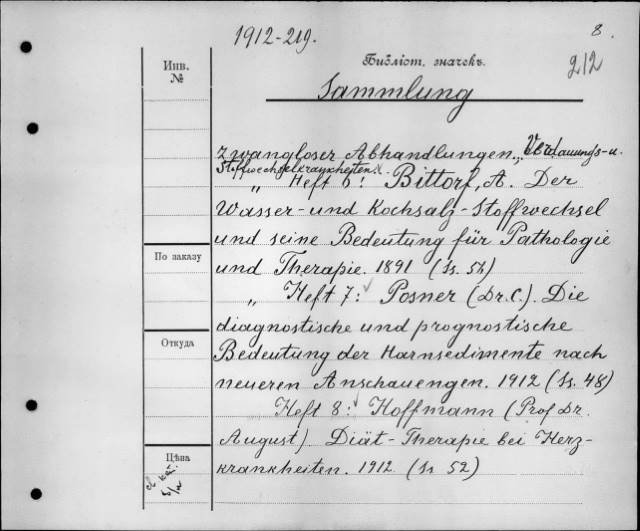 1912-219.
8.
Инв.
№
Библіот. значекъ.
212
Sammlung
zwangloser Abhandlungen „Verdauungs-u.
Stoffwechselkrankheiten".
„ Heft 6: Bittorf, A. Der
Wasser- und Kochsalz-Stoffwechsel
und seine Bedeutung für Pathologie
По заказу
und Therapie. 1891 (Ss. 57)
„ Heft 7: Posner (Dr. C.). Die
diagnostische und prognostische
Откуда
Bedeutung der Harnsedimente nach
neueren Anschauengen. 1912 (Ss. 48)
Heft 8: Hoffmann (Prof Dr.
August) Diät-Therapie bei Herz-
Цѣна
krankheiten. 1912 (Ss 52)